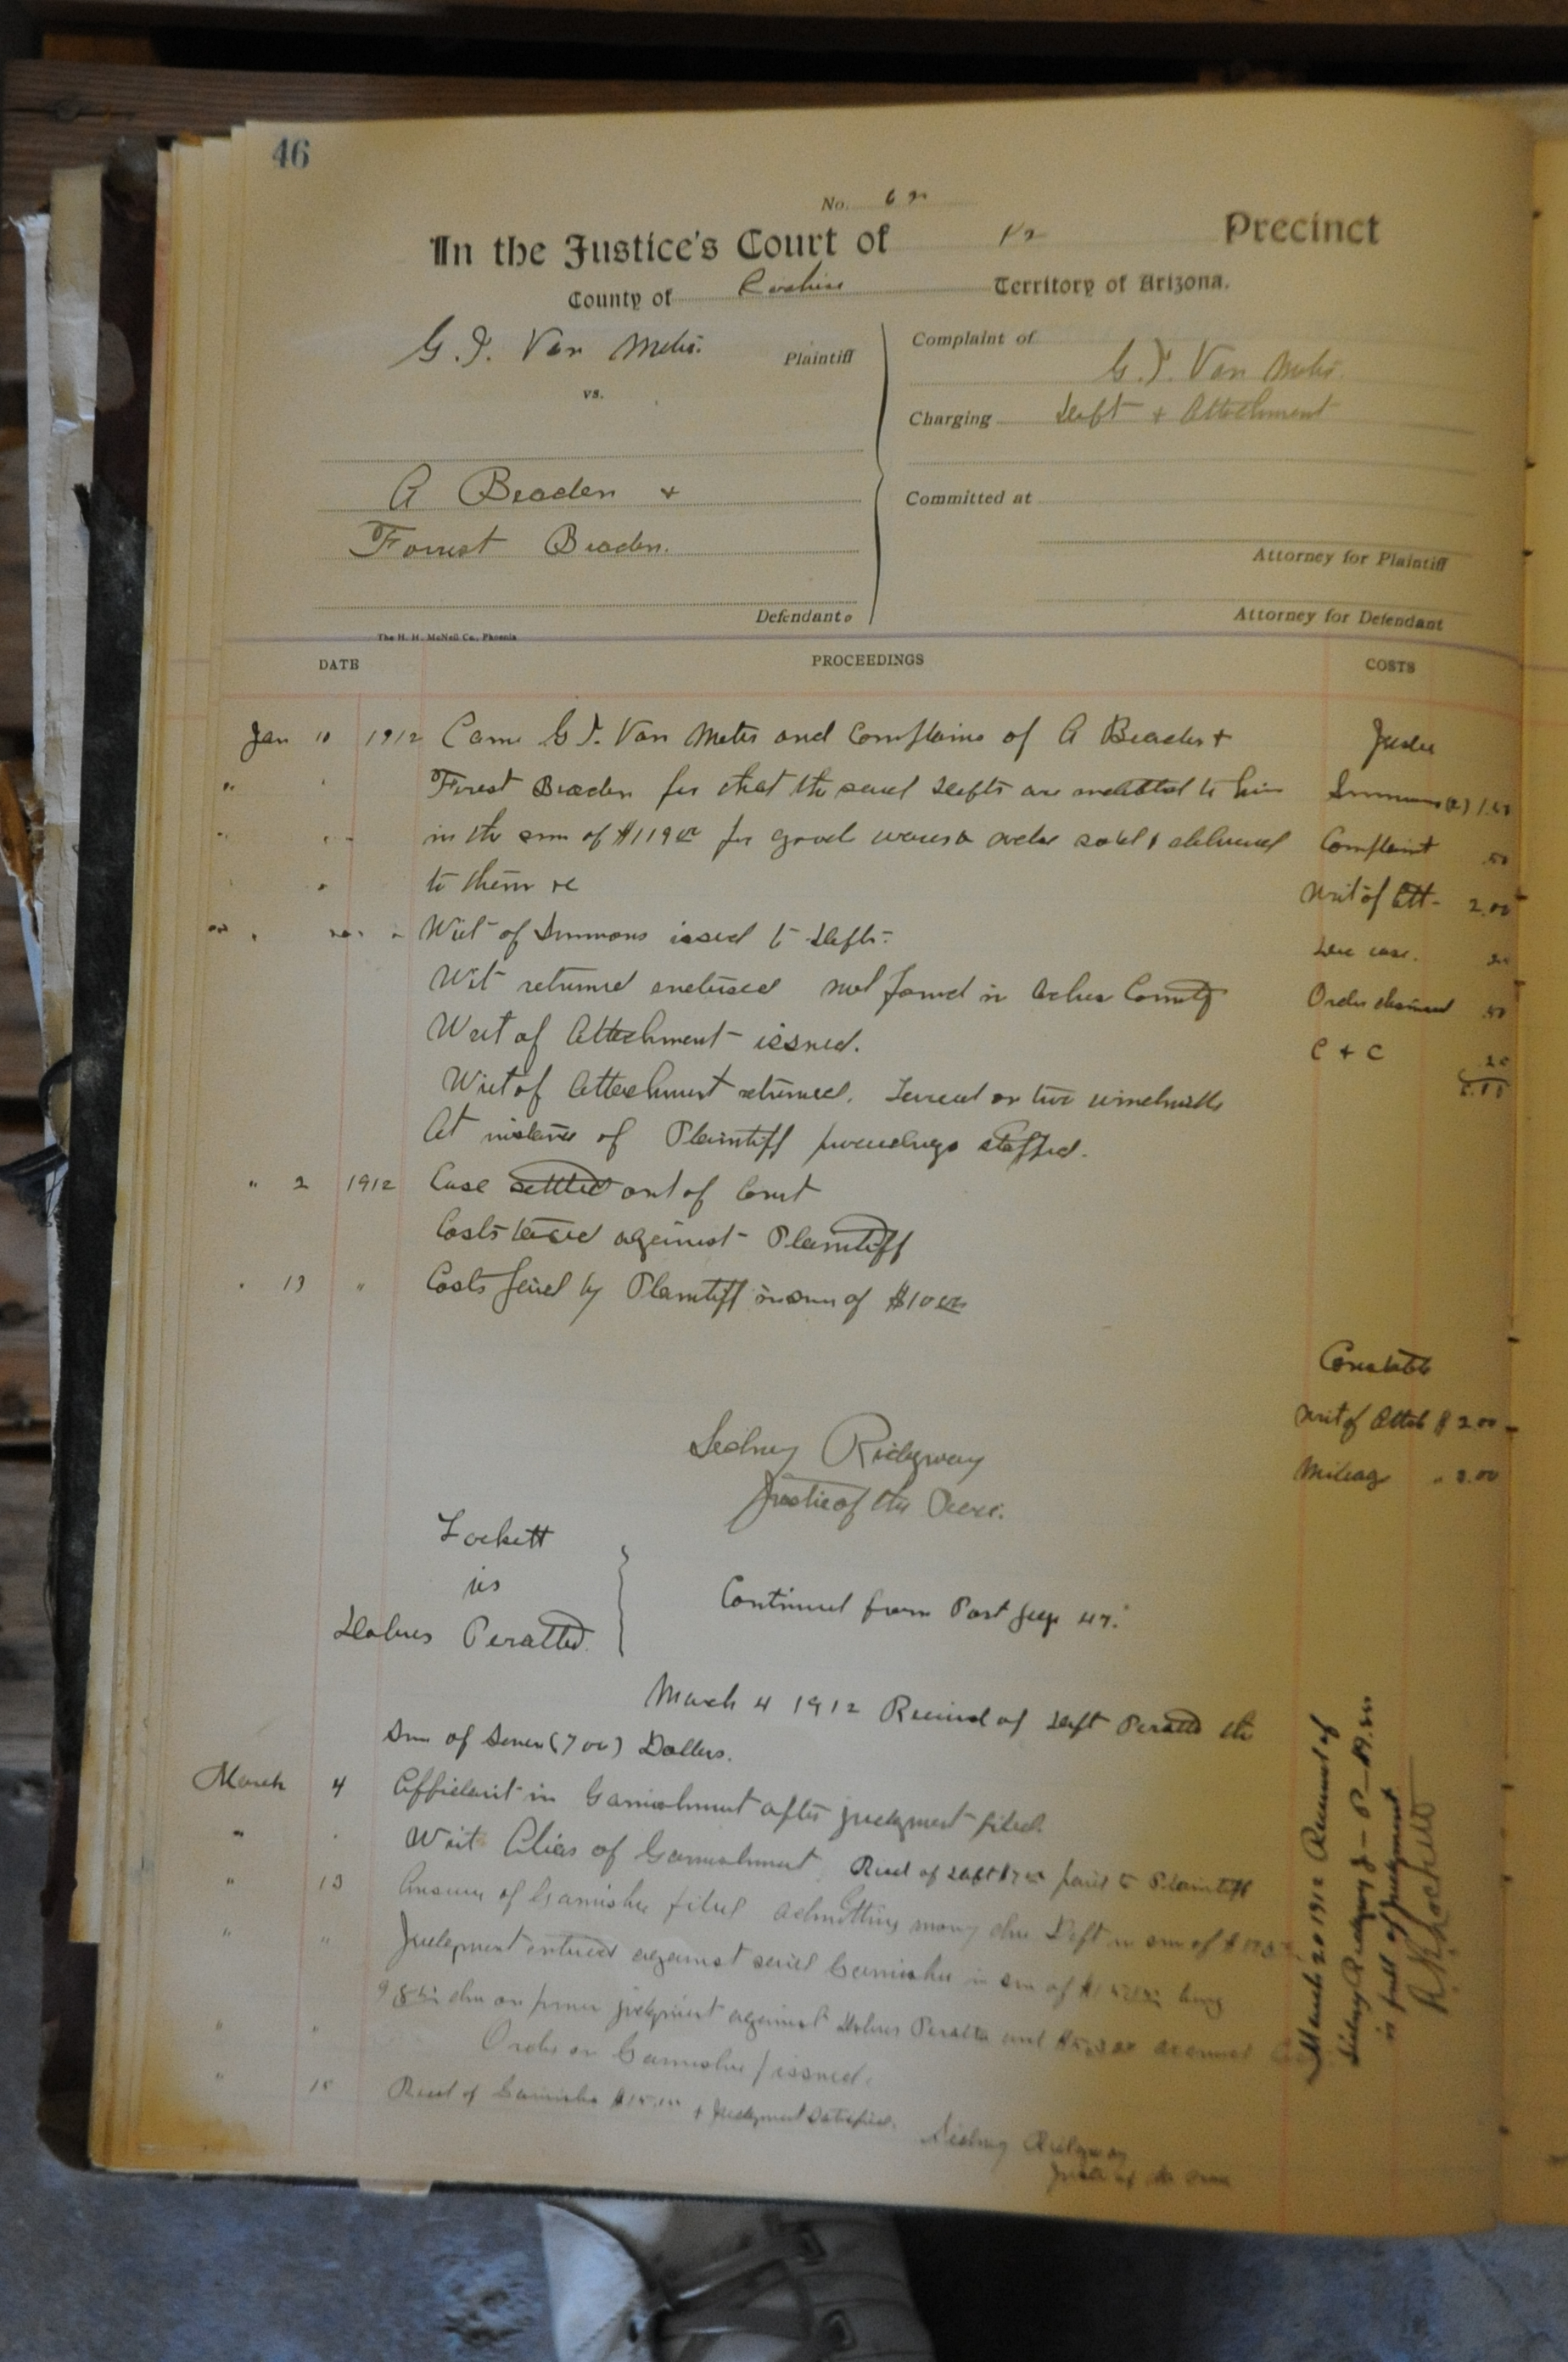 46
No. 62
In the Justice's Court of 12 Precinct
County of Cochise Territory of Arizona.
G. T. Van Meter. Plaintiff
vs.
A Beaden +
Forrest Beaden.
Defendants
Complaint of
G. T. Van Meter.
Charging Debt + Attachment
Committed at
Attorney for Plaintiff
Attorney for Defendant
The H. H. McNeil Co., Phoenix
DATE PROCEEDINGS COSTS
Jan 10 1912 Came G T. Van Meter and Complains of A Beaden +
Forest Beaden for that the said Defts are indebted to him
in the sum of $119 for goods wares sold + delivered
to them
Writ of Summons issued to Defts.
Writ returned endorsed not found in County
Writ of Attachment issued.
Writ of Attachment returned. Levied on two windmills
At instance of Plaintiff proceedings stopped.
" 2 1912 Case settled out of Court
Costs taxed against Plaintiff
" 13 " Costs paid by Plaintiff in sum of $10
Summons (2)
Complaint .50
Writ of Att- 2.00
Order .50
C + C
Constable
Writ of Attch $ 2.00
Mileage
Sidney Ridgway
Justice of the Peace.
Lockett
vs
Dolores Peralta
Continued from Post page 47.
March 4 1912 Received of Deft Peralta the
Sum of Seven (7 00) Dollars.
March 4 Affidavit in Garnishment after judgment filed.
Writ Alias of Garnishment. Recd of Deft $7 paid to Plaintiff
" 13 Answer of Garnishee filed admitting money due Deft in sum of
" " Judgment entered against said Garnishee in sum of being
due on former judgment against Dolores Peralta and
" " Order on Garnishee issued.
" 15 Recd of Garnishee + Judgment Satisfied.
Sidney Ridgway
Justice of the Peace
March 20 1912 Received of
Sidney Ridgway J- P-
in full of Judgment
Lockett